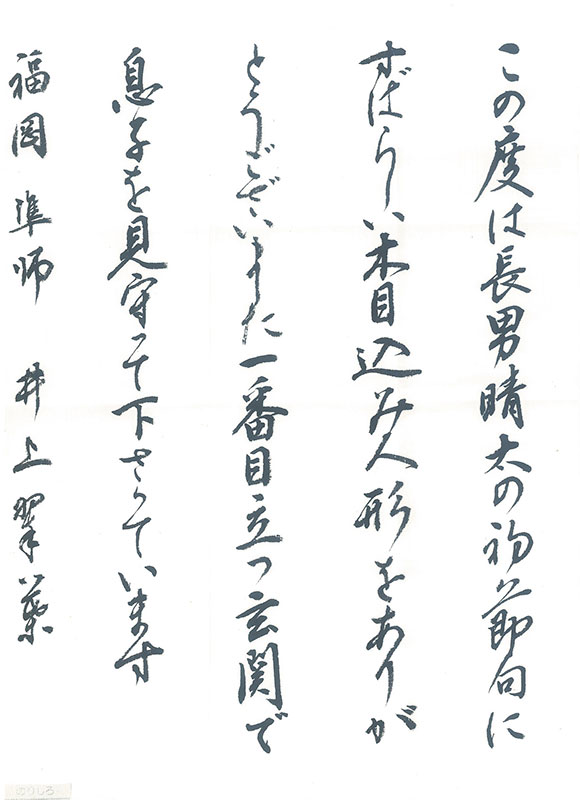 この度は長男晴太の初節句に
すばらしい木目込み人形をありが
とうございました一番目立つ玄関で
息子を見守って下さっています
福岡 準師 井上翠葉
のりしろ